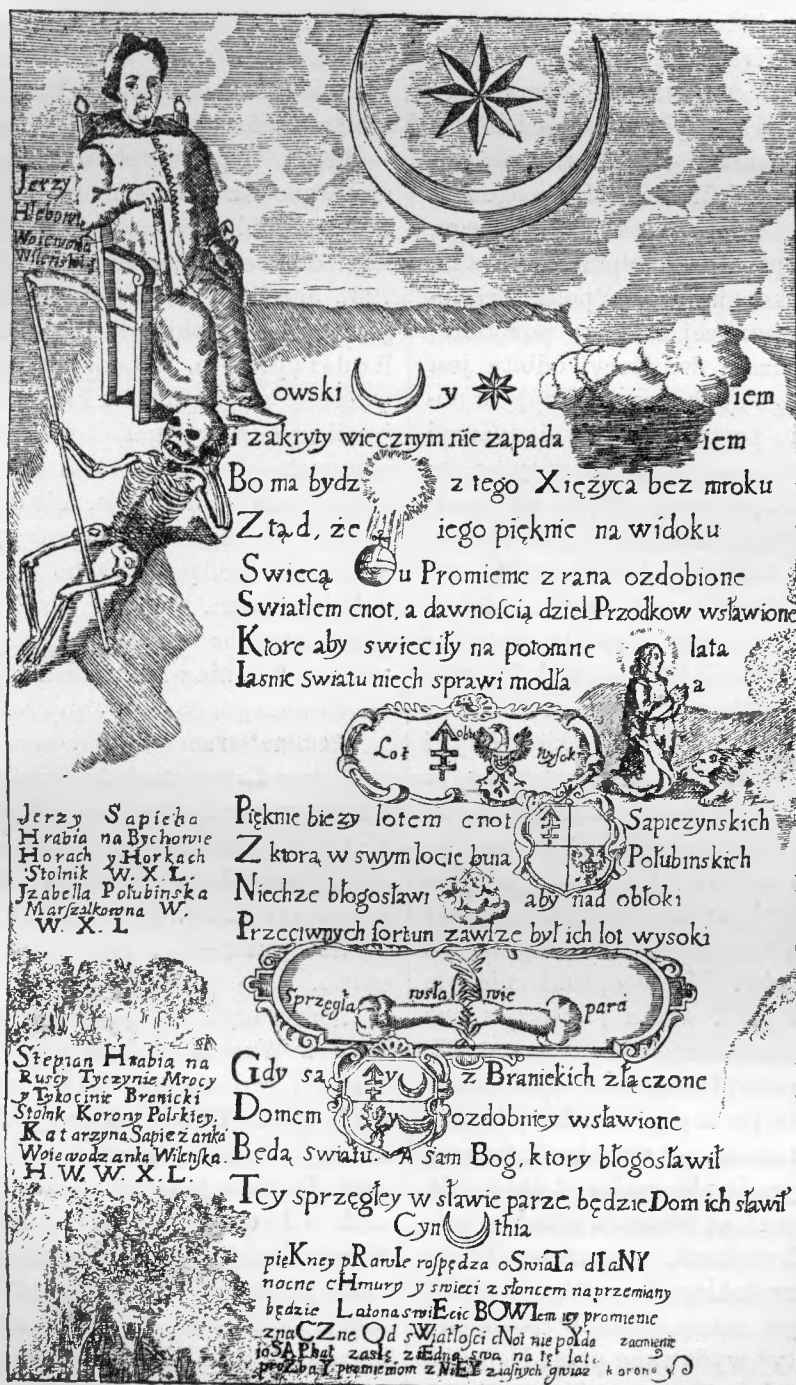 Jerzy
Hlebowic
Woiewoda
Wilenski
owski y iem
i zakryty wiecznym nie zapada iem
Bo ma bydz z tego Xiężyca bez mroku
Ztąd, że iego pięknie na widoku
Swiecą u Promienie z rana ozdobione
Swiatlem cnot, a dawnoſcią dziel Przodkow wsławione
Ktore aby swieciły na potomne lata
Iasnie Swiatu niech sprawi modła a
Lot obu wysok
Jerzy Sapieha
Hrabia na Bychowie
Horach y Horkach
Stolnik W. X. L.
Jzabella Połubinska
Marſzalkowna W.
W. X. L
Pięknie biezy lotem cnot Sapiezynskich
Z ktorą w swym locie buia Połubinskich
Niechze błogosławi aby nad obłoki
Przeciwnych fortun zawſze był ich lot wysoki
Sprzęgła wsła wie para
Stephan Hrabia na
Ruscy Tyczynie Mrocy
y Tykocinie Branicki
Stolnk Korony Polskiey,
Katarzyna Sapiezanka
Woiewodzanka Wilenſka.
H. W. W. X. L.
Gdy są y z Branickich złączone
Domem y ozdobniey wsławione
Będą swiatu. A sam Bog, ktory błogosławił
Tey sprzęgłey w sławie parze, będzie Dom ich sławił
Cyn thia
pięKney pRawIe roſpędza oSwiaTa dIaNY
nocne cHmury y swieci z słoncem na przemiany
będzie Latona swiEcic BOWIem iey promienie
znaCZne Od sWiatłości cNot nie poYda zacmienie
ioSAPhat zasłę ziEdna swa na tę lata
proZba Y promieniom z NiEY z iasnych gwiaz korone